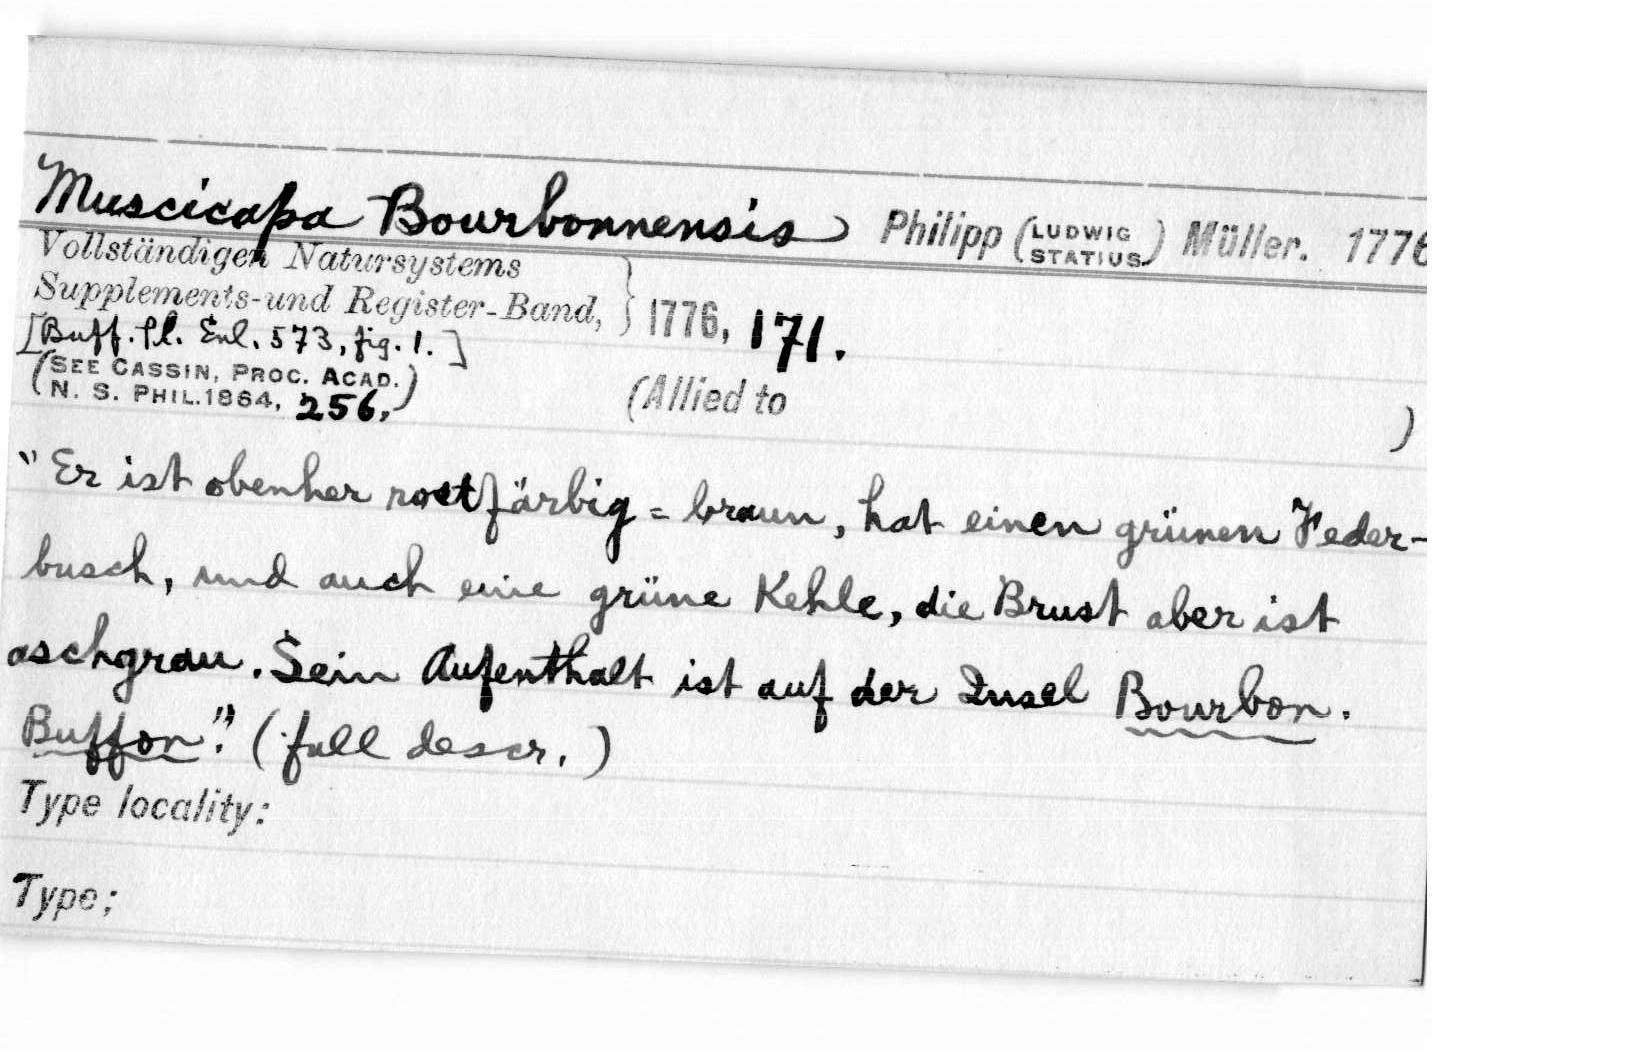 Muscicapa Bourbonnensis Philipp (LUDWIG STATIUS) Müller. 1776
Vollständigen Natursystems
Supplements-und Register-Band, } 1776, 171.
[Buff. Pl. Enl. 573, fig. 1.]
(SEE CASSIN, PROC. ACAD.
N. S. PHIL. 1864, 256,) (Allied to )
"Er ist obenher rostfärbig = braun, hat einen grünen Feder-
busch, und auch eine grüne Kehle, die Brust aber ist
aschgrau. Sein Aufenthalt ist auf der Insel Bourbon.
Buffon." (full descr.)
Type locality:
Type;